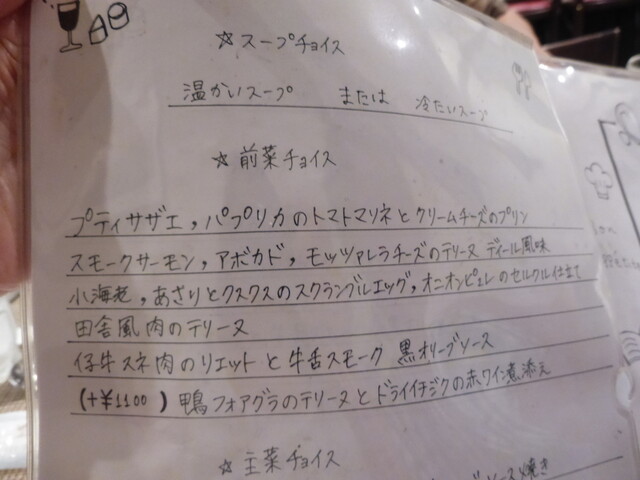 ☆スープチョイス
温かいスープ または 冷たいスープ
☆前菜チョイス
プティサザエ,パプリカのトマトマリネとクリームチーズのプリン
スモークサーモン,アボカド,モッツァレラチーズのテリーヌ ディール風味
小海老,あさりとクスクスのスクランブルエッグ,オニオンピュレのセルクル仕立て
田舎風肉のテリーヌ
仔牛スネ肉のリエットと牛舌スモーク 黒オリーブソース
(+¥1100)鴨フォアグラのテリーヌとドライイチジクの赤ワイン煮添え
☆主菜チョイス
ソース焼き